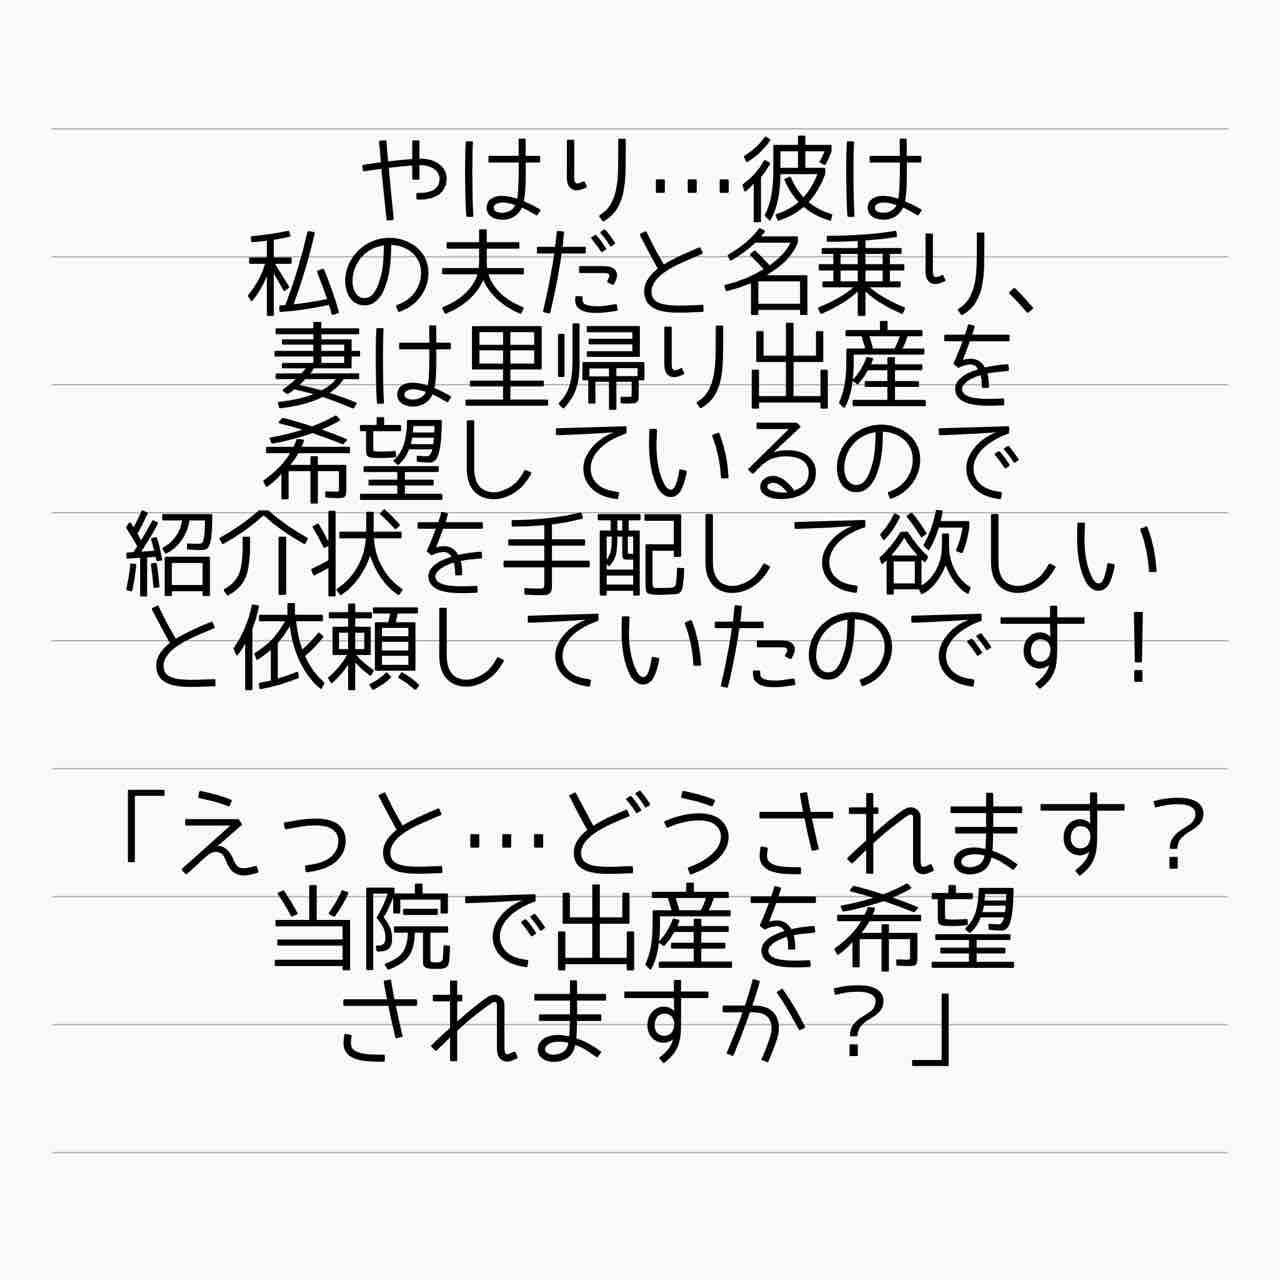 やはり…彼は
私の夫だと名乗り、
妻は里帰り出産を
希望しているので
紹介状を手配して欲しい
と依頼していたのです！
「えっと…どうされます？
当院で出産を希望
されますか？」